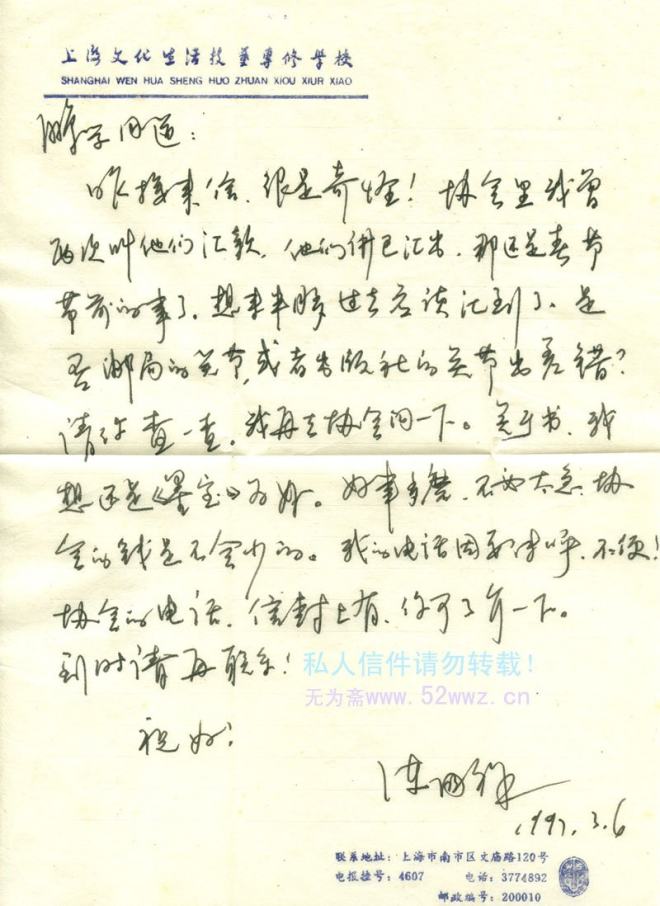 上海文化生活技艺专修学校
SHANGHAI WEN HUA SHENG HUO ZHUAN XIOU XIUR XIAO
同道：
昨接来信，很是奇怪！协会里我曾
两次叫他们汇款，他们倂已汇出，那还是春节
节前的事了，想来半月过去应该汇到了，是
否邮局的关节，或者出版社的关节出差错？
请你查一查，我再去协会问一下。关于书，我
想还是《墨宝》为好。好事多磨，不必太急，协
会的钱是不会少的。我的电话因要传呼，不便！
协会的电话，信封上有，你可了解一下。
到时请再联系！
私人信件请勿转载！
无为斋www.52wwz.cn
祝好！
1997.3.6
联系地址：上海市南市区文庙路120号
电报挂号：4607 电话：3774892
邮政编号：200010